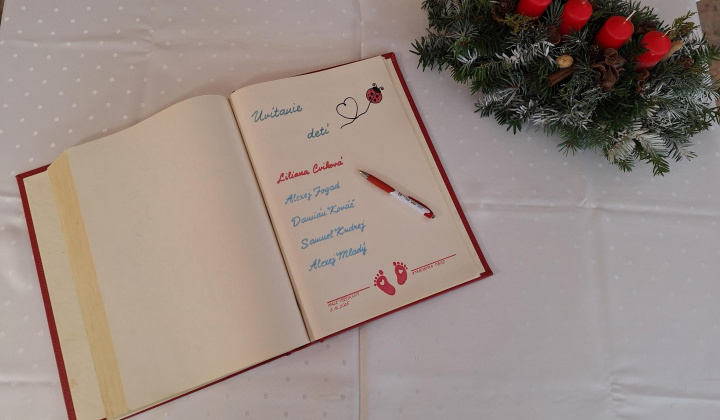 Uvítanie
detí
Liliana Cviková
Alexej Fogad
Damián Kováč
Samuel Kudrej
Alexej Mladý